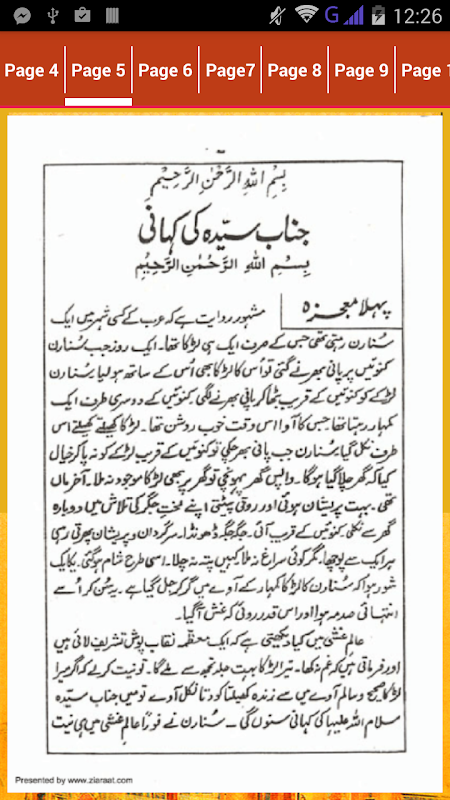 12:26
Page 4
Page 5
Page 6
Page7
Page 8
Page 9
Page 1
بِسْمِ اللهِ الرَّحْمٰنِ الرَّحِيْمِ
جناب سیّدہ کی کہانی
بِسْمِ اللهِ الرَّحْمٰنِ الرَّحِيْمِ
پہلا معجزہ
مشہور روایت ہے کہ عرب کے کسی شہر میں ایک
سُنارن رہتی تھی جس کے صرف ایک ہی لڑکا تھا۔ ایک روز جب سُنارن
کنوئیں پر پانی بھرنے گئی تو اُس کا لڑکا بھی اُس کے ساتھ ہو لیا سنارن
لڑکے کو کنوئیں کے قریب بٹھا کر پانی بھرنے لگی۔ کنوئیں کے دوسری طرف ایک
کمہار رہتا تھا جس کا آوا اس وقت خوب روشن تھا۔ لڑکا کھیلتے کھیلتے اس
طرف نکل گیا سُنارن جب پانی بھر چکی تو کنوئیں کے قریب لڑکے کو نہ پا کر خیال
کیا کہ گھر چلا گیا ہو گا۔ واپس گھر پہونچی تو گھر پر بھی لڑکا موجود نہ ملا۔ آخر ماں
تھی۔ بہت پریشان ہوئی اور روتی پیٹتی اپنے لختِ جگر کی تلاش میں دوبارہ
گھر سے نکلی کنوئیں کے قریب آئی۔ جگہ جگہ ڈھونڈا۔ سرگردان و پریشان پھرتی رہی
ہر ایک سے پوچھا۔ مگر کوئی سراغ نہ ملا کہیں پتہ نہ چلا۔ اسی طرح شام ہو گئی۔ یکایک
شور ہوا کہ سُنارن کا لڑکا کمہار کے آوے میں گر کر جل گیا ہے۔ یہ سُن کر اُسے
انتہائی صدمہ ہوا اور اس قدر روئی کہ غش آ گیا۔
عالمِ غشی میں کیا دیکھتی ہے کہ ایک معظمہ نقاب پوش تشریف لائی ہیں
اور فرماتی ہیں کہ غم نہ کھا۔ تیرا لڑکا بہت جلد تجھ سے ملے گا۔ تو نیت کر لے کہ اگر میرا
لڑکا صحیح و سالم آوے میں سے زندہ کھیلتا کودتا نکل آوے تو میں جناب سیدہ
سلام اللہ علیہا کی کہانی سنوں گی ۔ سُنارن نے فوراً عالمِ غشی میں ہی نیت
Presented by www.ziaraat.com